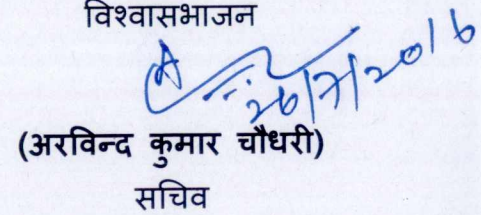 विश्वासभाजन
26/7/2016
(अरविन्द कुमार चौधरी)
सचिव